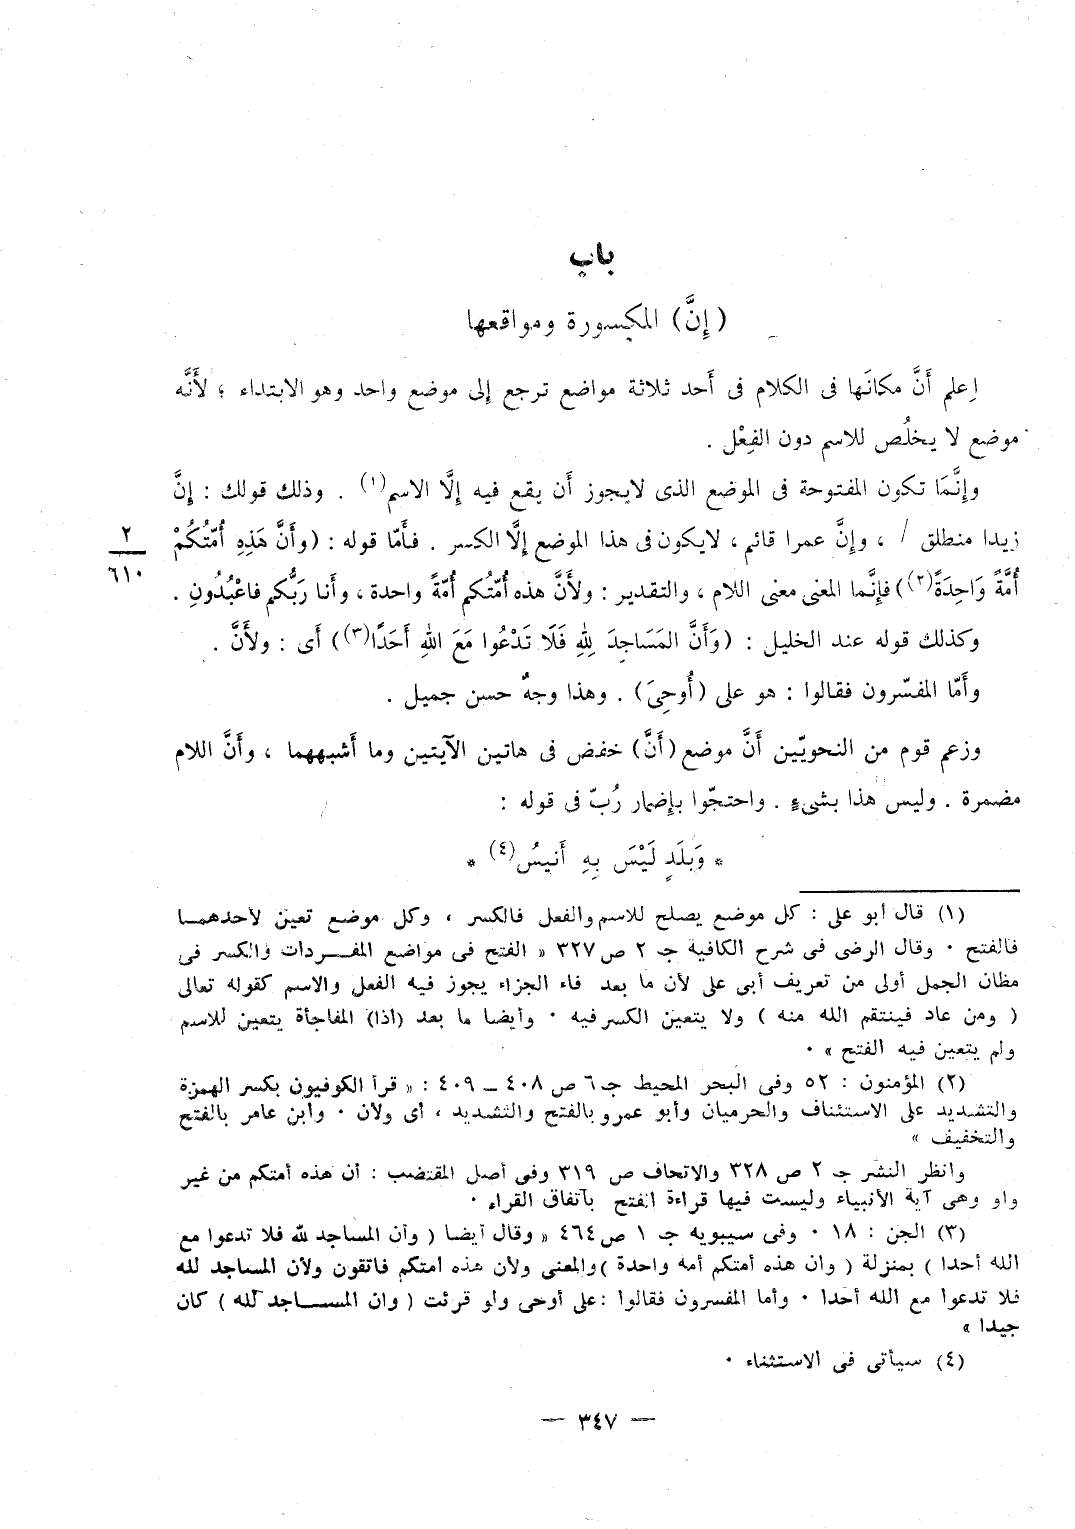 باب
(إِنَّ) المكسورة ومواقعها
اِعلم أَنَّ مكانَها فى الكلام فى أَحد ثلاثة مواضع ترجع إِلى موضع واحد وهو الابتداء ؛ لأَنَّه
موضع لا يخلُص للاسم دون الفِعْل .
وإِنَّمَا تكون المفتوحة فى الموضع الذى لايجوز أَن يقع فيه إِلَّا الاسم(١) . وذلك قولك : إِنَّ
زيدا منطلق / ، وإِنَّ عمرا قائم ، لايكون فى هذا الموضع إِلَّا الكسر . فأَمّا قوله : (وأَنَّ هَذِهِ أُمّتُكُمْ
٢
٦١٠
أُمَّةً وَاحِدَةً(٢)) فإِنَّما المعنى معنى اللام ، والتقدير : ولأَنَّ هذه أُمّتُكم أُمّةً واحدة ، وأَنا رَبُّكم فاعْبُدُونِ .
وكذلك قوله عند الخليل : (وَأَنَّ المَسَاجِدَ لِلهِ فَلَا تَدْعُوا مَعَ اللهِ أَحَدًا(٣)) أَى : ولأَنَّ .
وأَمّا المفسّرون فقالوا : هو على (أُوحِىَ) . وهذا وجهٌ حسن جميل .
وزعم قوم من النحويّين أَنَّ موضع (أَنَّ) خفض فى هاتين الآيتين وما أَشبههما ، وأَنَّ اللام
مضمرة . وليس هذا بشىءٍ . واحتجّوا بإِضمار رُبّ فى قوله :
* وَبَلَدٍ لَيْسَ بِهِ أَنيسُ(٤) *
(١) قال أبو على : كل موضع يصلح للاسم والفعل فالكسر ، وكل موضع تعين لأحدهمـا
فالفتح ٠ وقال الرضى فى شرح الكافية جـ ٢ ص ٣٢٧ « الفتح فى مواضع المفـــردات والكسر فى
مظان الجمل أولى من تعريف أبى على لأن ما بعد فاء الجزاء يجوز فيه الفعل والاسم كقوله تعالى
( ومن عاد فينتقم الله منه ) ولا يتعين الكسر فيه ٠ وأيضا ما بعد (اذا) المفاجأة يتعين للاسم
ولم يتعين فيه الفتح » ٠
(٢) المؤمنون : ٥٢ وفى البحر المحيط جـ ٦ ص ٤٠٨ ــ ٤٠٩ : « قرأ الكوفيون بكسر الهمزة
والتشديد على الاستئناف والحرميان وأبو عمرو بالفتح والتشديد ، أى ولان ٠ وابن عامر بالفتح
والتخفيف »
وانظر النشر جـ ٢ ص ٣٢٨ والاتحاف ص ٣١٩ وفى أصل المقتضب : ان هذه أمتكم من غير
واو وهى آية الأنبياء وليست فيها قراءة الفتح باتفاق القراء ٠
(٣) الجن : ١٨ ٠ وفى سيبويه جـ ١ ص ٤٦٤ « وقال أيضا ( وأن المساجد لله فلا تدعوا مع
الله أحدا ) بمنزلة ( وان هذه أمتكم أمة واحدة ) والمعنى ولأن هذه امتكم فاتقون ولأن المساجد لله
فلا تدعوا مع الله أحدا ٠ وأما المفسرون فقالوا : على أوحى ولو قرئت ( وان المســـاجد لله ) كان
جيدا »
(٤) سيأتى فى الاستثناء ٠
— ٣٤٧ —